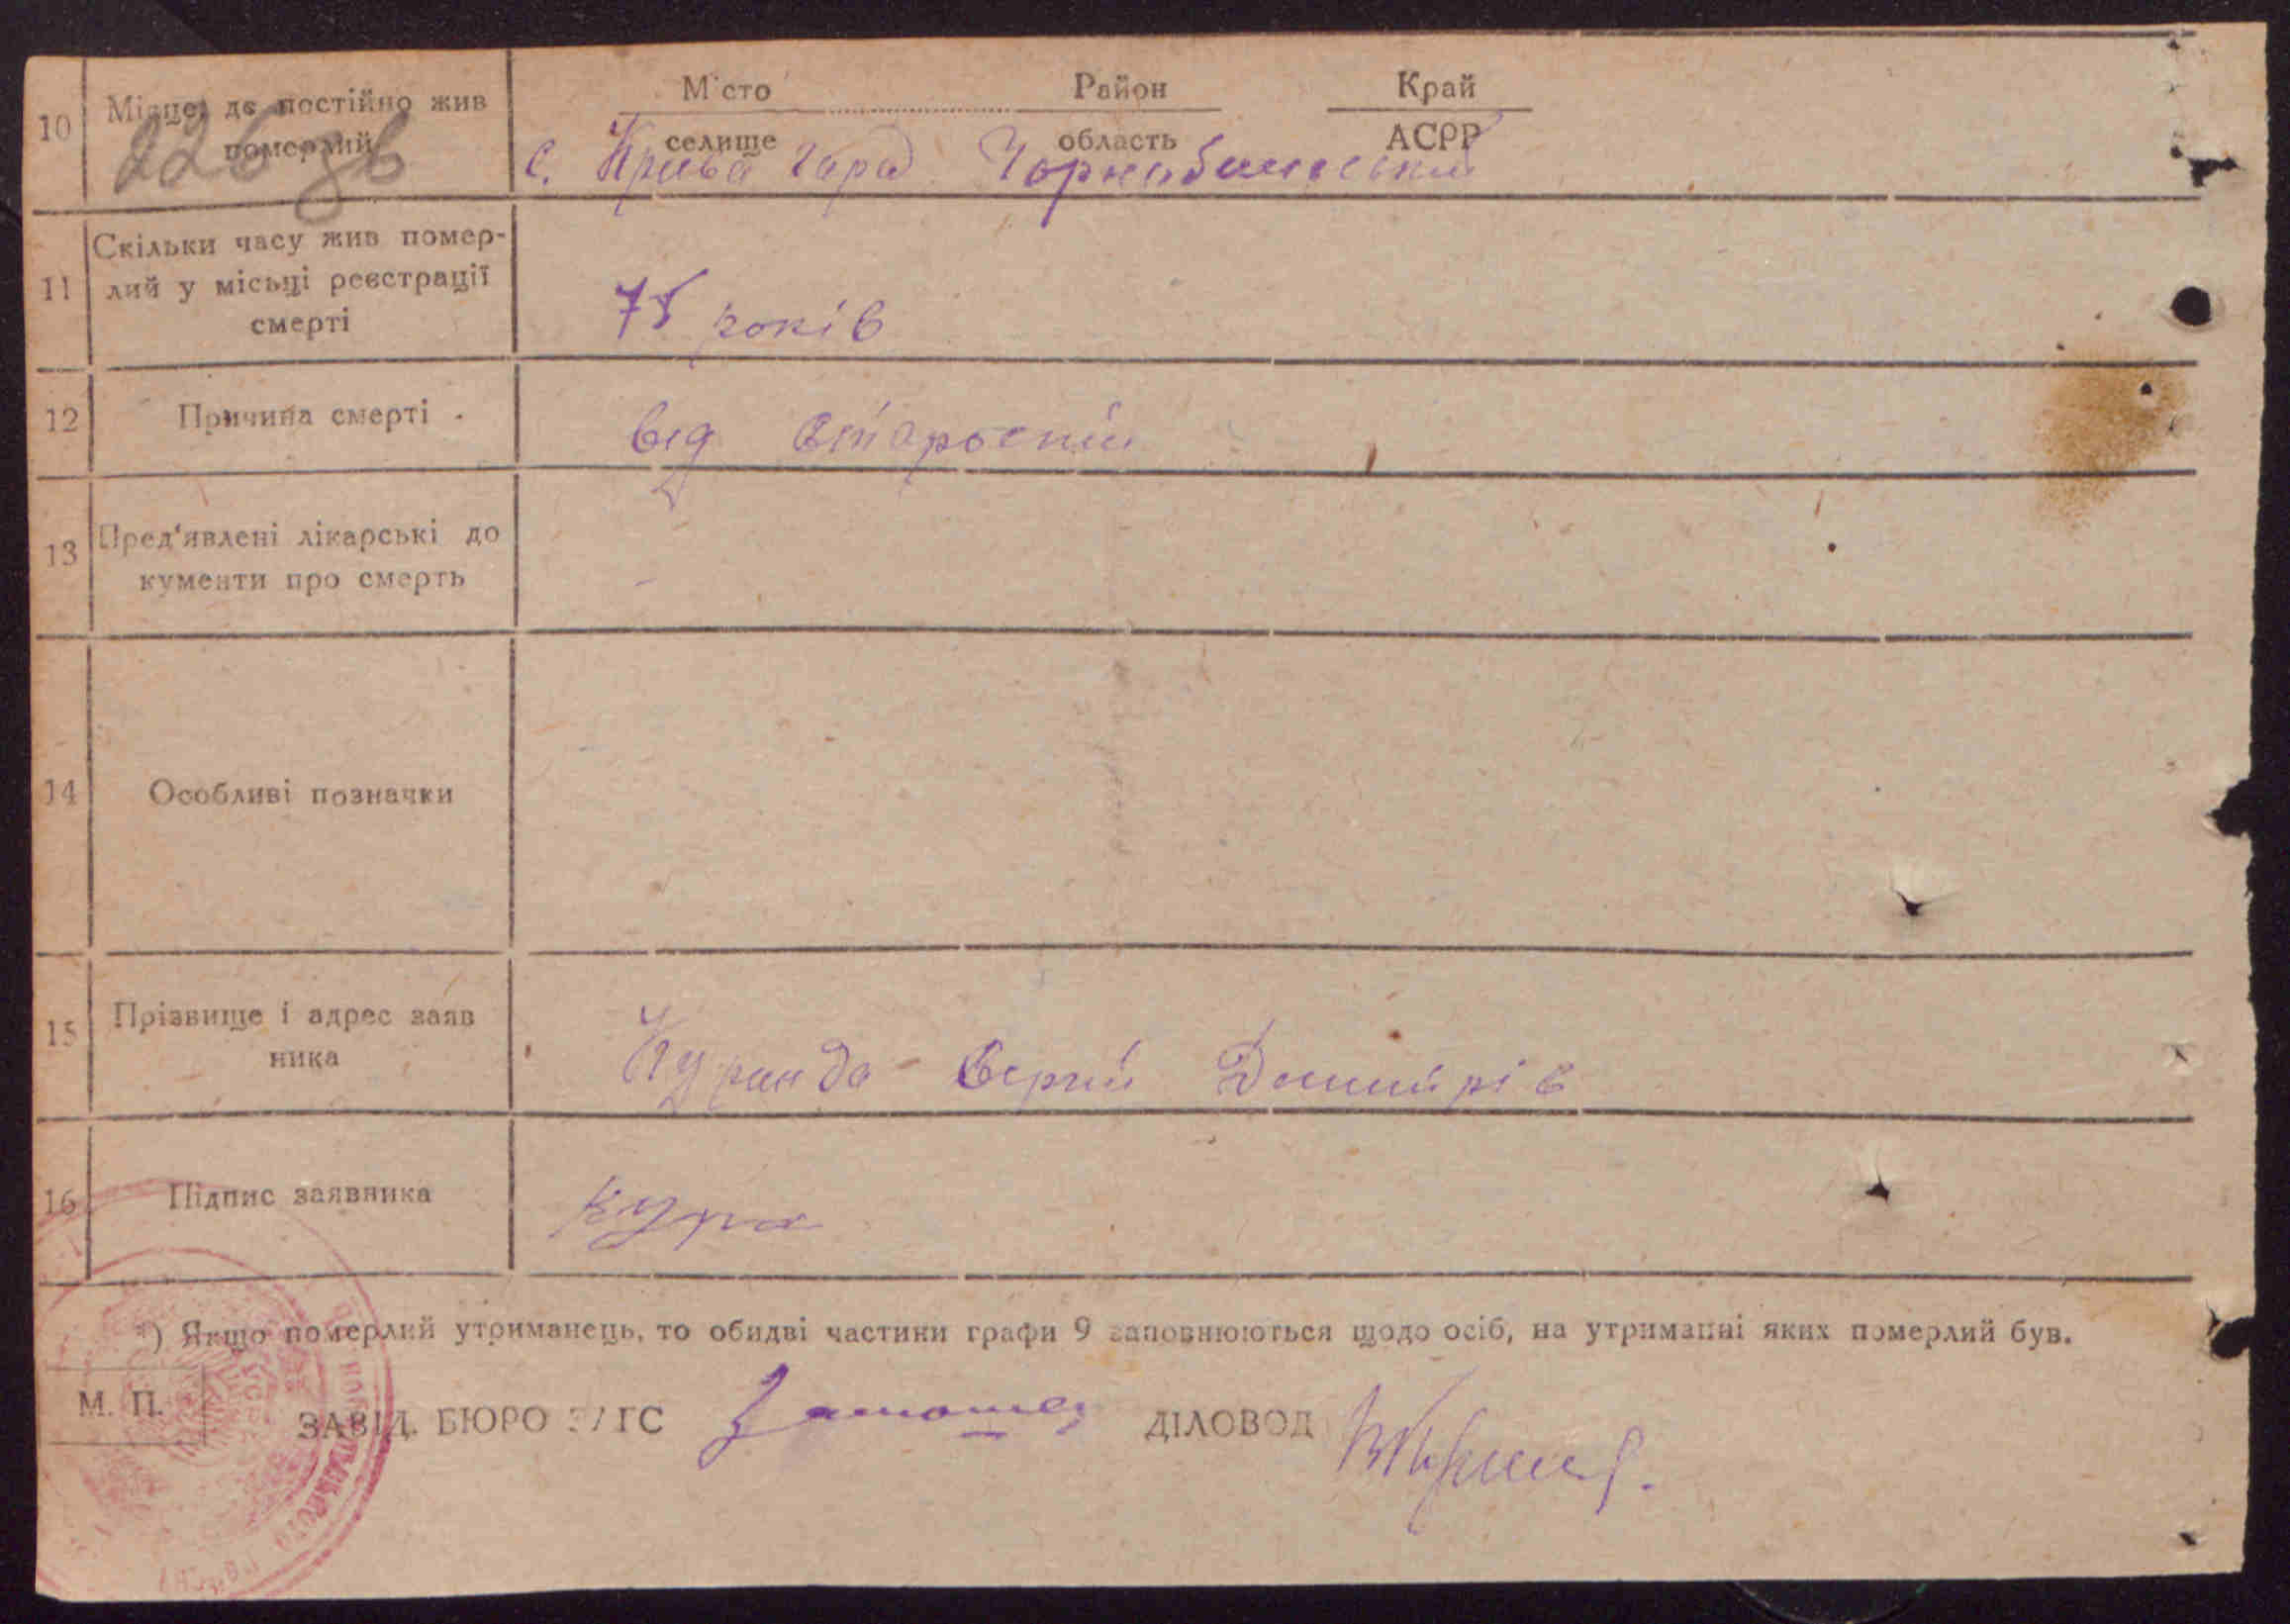 10
Місце, де постійно жив
померлий
226 зв
М'сто Район Край
селище область АСРР
с. Крива Чорнобаївський
11
Скільки часу жив помер-
лий у місьці реєстрації
смерті
75 років
12
Причина смерті
від старости
13
Пред'явлені лікарські до
кументи про смерть
-
14
Особливі позначки
15
Прізвище і адрес заяв
ника
16
Підпис заявника
*) Якщо померлий утриманець, то обидві частини графи 9 заповнюються щодо осіб, на утриманні яких померлий був.
М. П.
ЗАВІД. БЮРО ЗАГС ДІЛОВОД